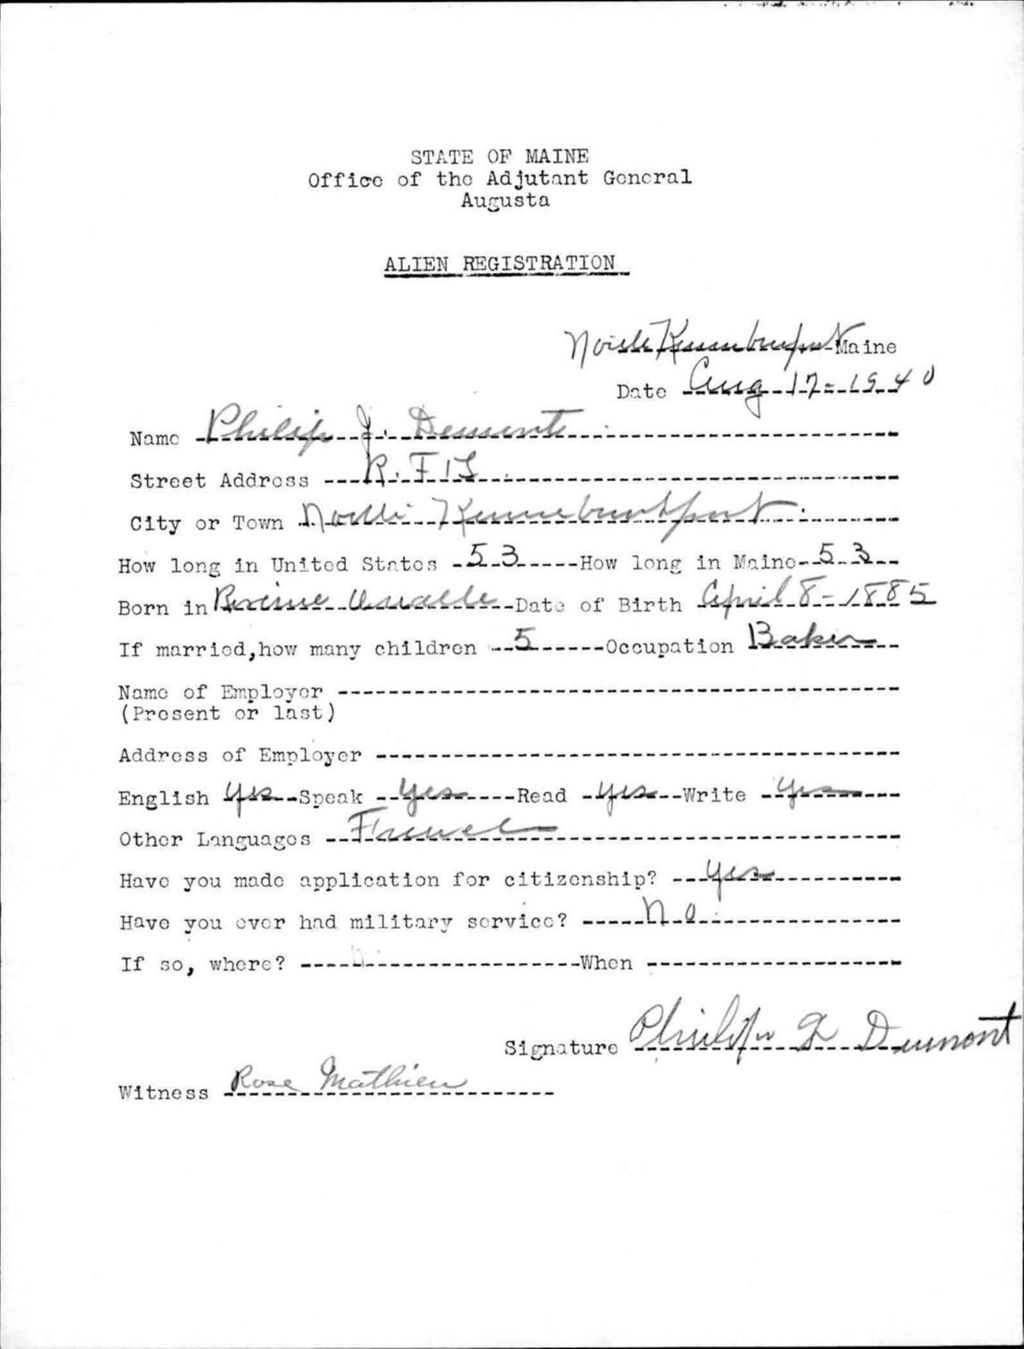 STATE OF MAINE
Office of the Adjutant General
Augusta
ALIEN REGISTRATION
Kennebunkport Maine
Date Aug 17-1940
Name Philip J. Dumont
Street Address R.F.
City or Town Kennebunkport
How long in United States 53 How long in Maine 53
Born in Date of Birth April 8-1885
If married, how many children 5 Occupation Baker
Name of Employer
(Present or last)
Address of Employer
English Yes Speak Yes Read Yes Write Yes
Other Languages French
Have you made application for citizenship? Yes
Have you ever had military service? No
If so, where? When
Signature Philip J Dumont
Witness Rose Mathieu